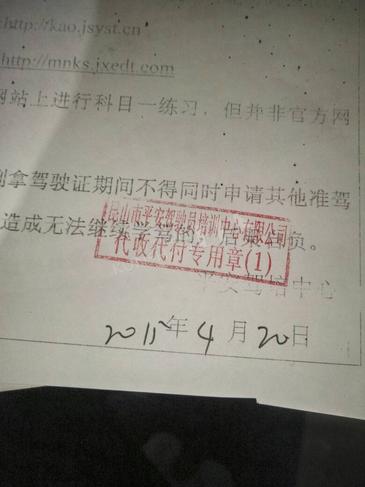 http://kao.jsyst.cn
http://mnks.jxedt.com
网站上进行科目一练习，但并非官方网
到拿驾驶证期间不得同时申请其他准驾
造成无法继续学驾的，后果自负。
昆山市平安驾驶员培训中心有限公司
代收代付专用章(1)
平安驾培中心
2015年4月20日